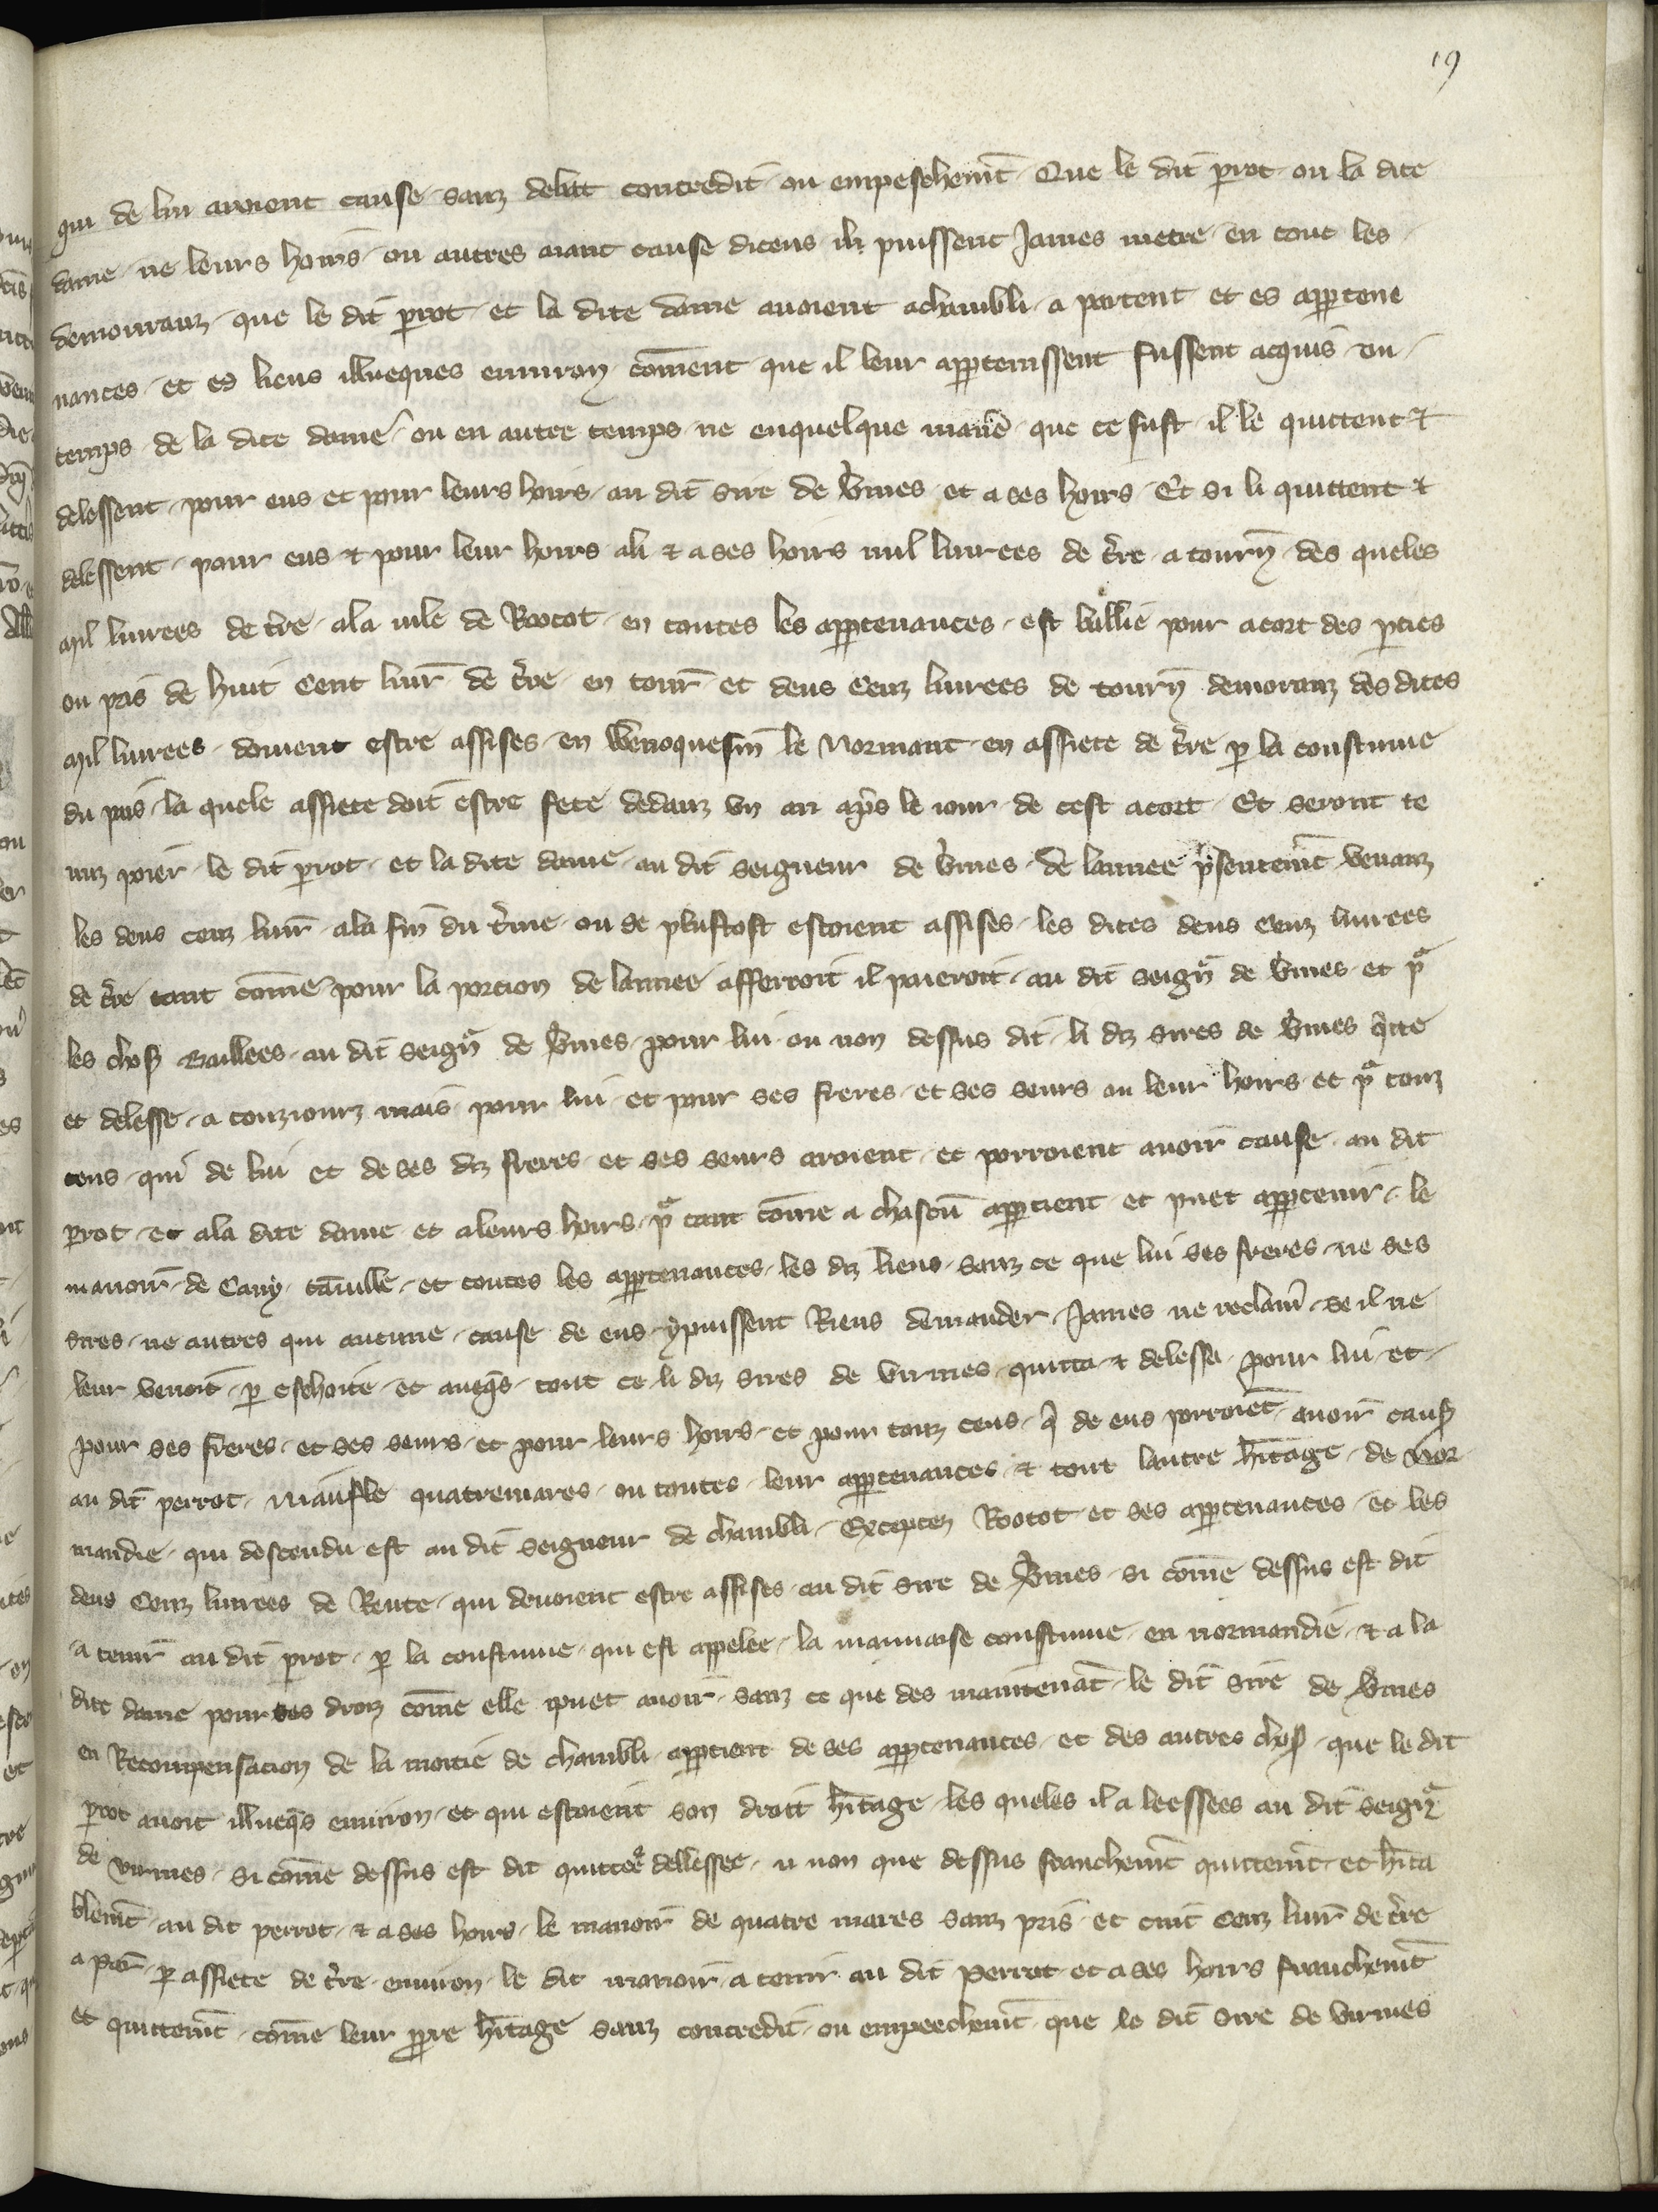 19
qui de lui auroient cause sanz debat contredit ou empeschem̄t Que le dit p̄rot ou la dite
dame ne leurs hoirs ou autres aiant cause diceus ili puissent James metre en tout les
demouranz que le dit p̄rot et la dite dame auoient a chambli a partent et es app̄tene
nances et es lieus illueques enuiron com̄ent que il leur app̄tenissent fussent acquis ou
temps de la dite dame ou en autre temps ne en quelque manie᷑ que ce fust il le quittent ⁊
delessent pour eus et pour leurs hoirs au dit sire de v᷑mes et a ses hoirs Et si li quittent ⁊
delessent pour eus ⁊ pour leur hoirs a li ⁊ a ses hoirs mil liurees de t᷑re a tourn̄ des queles
mil liurees de t᷑re a la vile de Rootot en toutes les app̄tenances est baillie pour acort des p̄ties
ou pris de huit cent liur̄ de t᷑re en tour̄ et deus cenz liurees de tourn̄ demoranz des dites
mil liurees doiuent estre assises en Veuoquessin le Normant en assiete de t᷑re p̄ la coustume
du pais la quele assiete doit estre fete dedanz vn an ap̄s le iour de cest acort Et seront te
nuz poier le dit p̄rot et la dite dame au dit seigneur de v᷑mes de lannee p̄sentem̄t venanz
les deus cenz liur̄ a la fin du t᷑me ou se plustost estoient assises les dites deus cenz liurees
de t᷑re tant com̄e pour la porcion de lannee afferroit il paieroit au dit seign̄r de v᷑mes et p̄r
les choses Baillees au dit seign̄r de v᷑mes pour lui ou non dessus dit li diz sires de v᷑mes q̄tte
et delesse a touziourz mais pour lui et pour ses freres et ses seurs ou leur hoirs et p̄r touz
ceus qui de lui et de ses diz freres et ses seurs aroient et porroient auoir cause au dit
p̄rot et a la dite dame et a leurs hoirs p̄r tant com̄e a chascun̄ app̄tient et puet app̄tenir le
manoir de Cany ca᷑uille et toutes les app̄tenances les diz lieus sanz ce que lui ses freres ne ses
sires ne autres qui aucune cause de eus y puissent Riens demander James ne reclam̄ se il ne
leur venoit p̄ eschoite et auecq̄s tout ce li diz sires de virmes quitta ⁊ delessa pour lui et
pour ses freres et ses seurs et pour leurs hoirs et pour touz ceus q̄ de eus porroiēt auoir caus̄
au dit perrot Maufle quatremares ou toutes leur app̄tenances ⁊ tout lautre h̄itage de nor
mandie qui descendu est au dit seigneur de chambli Exceptez Rootot et ses app̄tenances et les
deus cenz liurees de Rente qui deuoient estre assises au dit sire de v᷑mes si com̄e dessus est dit
a tenir au dit p̄rot p̄ la coustume qui est appelee la mauuaise coustume en normandie ⁊ a la
dite dame pour ses droiz com̄e elle i puet auoir sanz ce que des maintenāt le dit sire de v᷑mes
en Recompensacion de la moitie de chambli app̄tient de ses app̄tenances et des autres chos̄ que le dit
p̄rot auoit illueq̄s enuiron et qui estoient son droit h̄itage les queles il a leessees au dit seign̄r
de virmes si com̄e dessus est dit quittee dellessee u non que dessus franchem̄t quittem̄t et h̄ita
blem̄t au dit perrot ⁊ a ses hoirs le manoir de quatre mares sanz pris et cinc cenz liur̄ de t᷑re
a par̄ p̄ assiete de t᷑re enuiron le dit manoir a tenir au dit perrot et a ses hoirs franchem̄t
et quittem̄t com̄e leur pp̄re h̄itage sanz contredit ou empeechem̄t que le dit sire de virmes